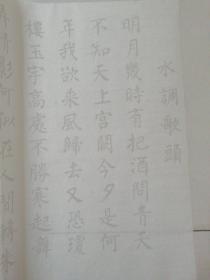 水調歌頭
明月幾時有把酒問青天
不知天上宮闕今夕是何
年我欲乘風歸去又恐瓊
樓玉宇高處不勝寒起舞
弄清影何似在人間轉朱